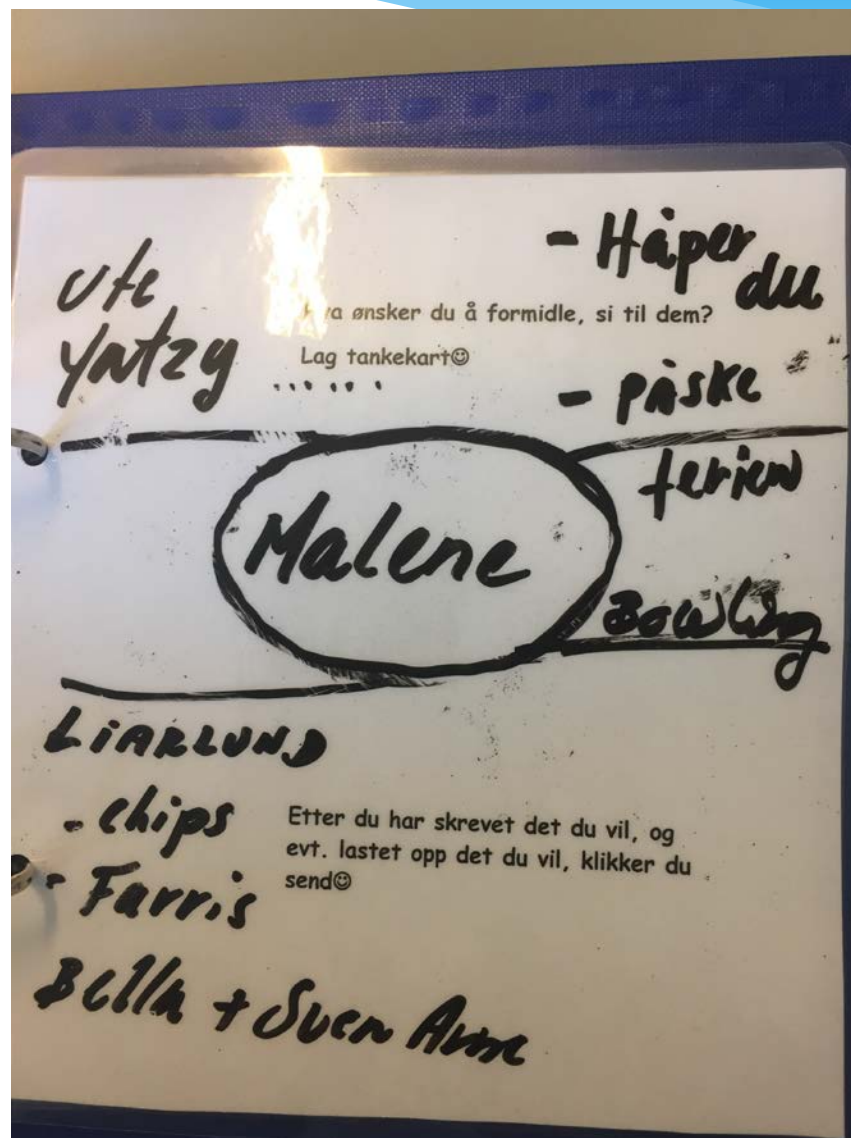 - Håper
du
ute
yatzy
ønsker du å formidle, si til dem?
Lag tankekart☺
......
- påske
ferien
Malene
Bowling
LIARLUND
- chips
- Farris
Etter du har skrevet det du vil, og
evt. lastet opp det du vil, klikker du
send☺
Bella + Sven Arne